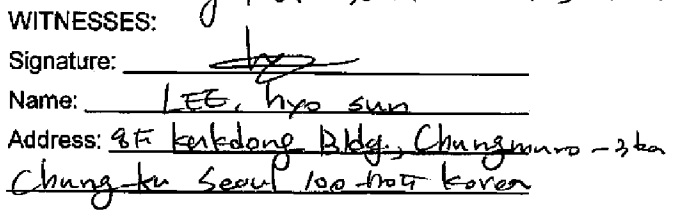 WITNESSES:
Signature:
Name: LEE, hyo sun
Address: 8F Bldg., Chungmuro-3ka
Chung-ku Seoul Korea